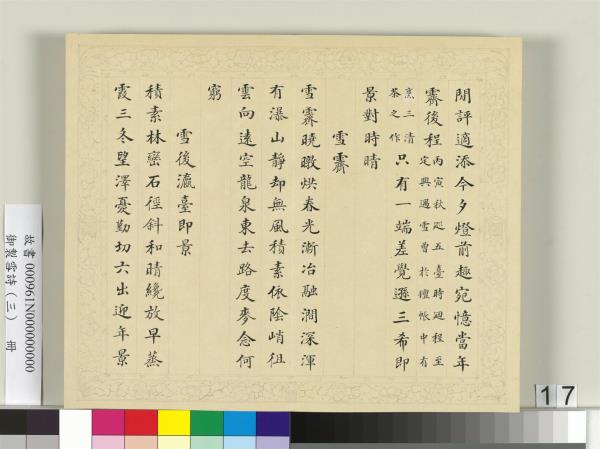 閒評適添今夕燈前趣宛憶當年
霽後程丙寅秋廵五臺時迴程至
定興遇雪曾於氊帳中有
烹三清
茶之作只有一端差覺遜三希即
景對時晴
雪霽
雪霽曉暾烘春光漸冶融澗深渾
有瀑山靜却無風積素依陰峭徂
雲向遠空龍泉東去路度麥念何
窮
雪後瀛臺即景
積素林巒石徑斜和晴纔放早蒸
霞三冬望澤憂勤切六出迎年景
故書 000961N000000000
御製雪詩（三） 冊
17